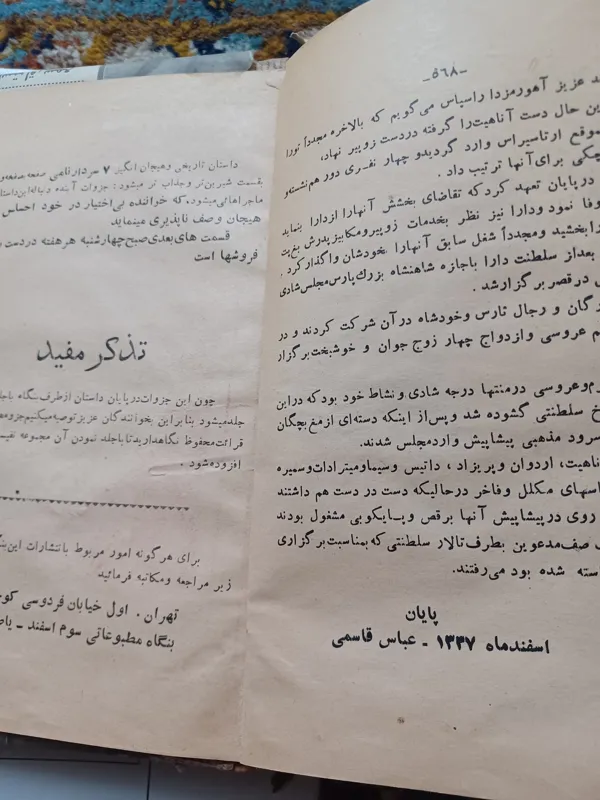 -٥٦٨-
عزیز آهورمزدا راسپاس می‌گویم که بالاخره مجدداً تورا
این حال دست آناهیت‌را گرفته دردست زوپیر نهاد،
موقع ارتاسیراس وارد گردید و چهار نفری دور هم نشسته و
چکی برای آنها ترتیب داد .
درپایان تعهد کردکه تقاضای بخشش آنهارا ازدارا بنماید
وفا نمود ودارا نیز نظر بخدمات زوپیر ومکابیز پدرش
را بخشید و مجدداً شغل سابق آنهارا بخودشان واگذار کرد .
بعداز سلطنت دارا باجازه شاهنشاه بزرك پارس مجلس شادی
در قصر برگزار شد .
گان و رجال تارس وخودشاه درآن شرکت کردند و در
م عروسی وازدواج چهار زوج جوان و خوشبخت برگزار
م وعروسی درمنتها درجه شادی و نشاط خود بود که دراین
خ سلطنتی گشوده شد و پس از اینکه دسته‌ای از مغ بچگان
سرود مذهبی پیشاپیش واردمجلس شدند.
ناهیت، اردوان و پریزاد ، داتیس و سیما و میترادات و سمیره
اسهای مکلل و فاخر درحالیکه دست در دست هم داشتند
روی درپیشاپیش آنها برقص و پایکوبی مشغول بودند
صف مدعوین بطرف تالار سلطنتی که بمناسبت برگزاری
سته شده بود می‌رفتند.
پایان
اسفندماه ۱۳۳۷ ـ عباس قاسمی
داستان تاریخی وهیجان انگیز ۷ سردار نامی
بقسمت شیرین‌تر و جذاب تر میشود : جزوات آینده دنباله این داستان
ماجراهائی میشود، که خواننده بی‌اختیار در خود احساس
هیجان وصف ناپذیری مینماید
قسمت های بعدی صبح چهارشنبه هر هفته در دست
فروشها است
تذکر مفید
چون این جزوات درپایان داستان از طرف بنگاه
جلد میشود بنابراین بخوانندگان عزیز توصیه میکنیم
قرائت محفوظ نگاهدارید تا با جلد نمودن آن مجموعه
افزوده شود .
برای هرگونه امور مربوط با نتشارات این
زیر مراجعه و مکاتبه فرمائید
تهران . اول خیابان فردوسی
بنگاه مطبوعاتی سوم اسفند ـ